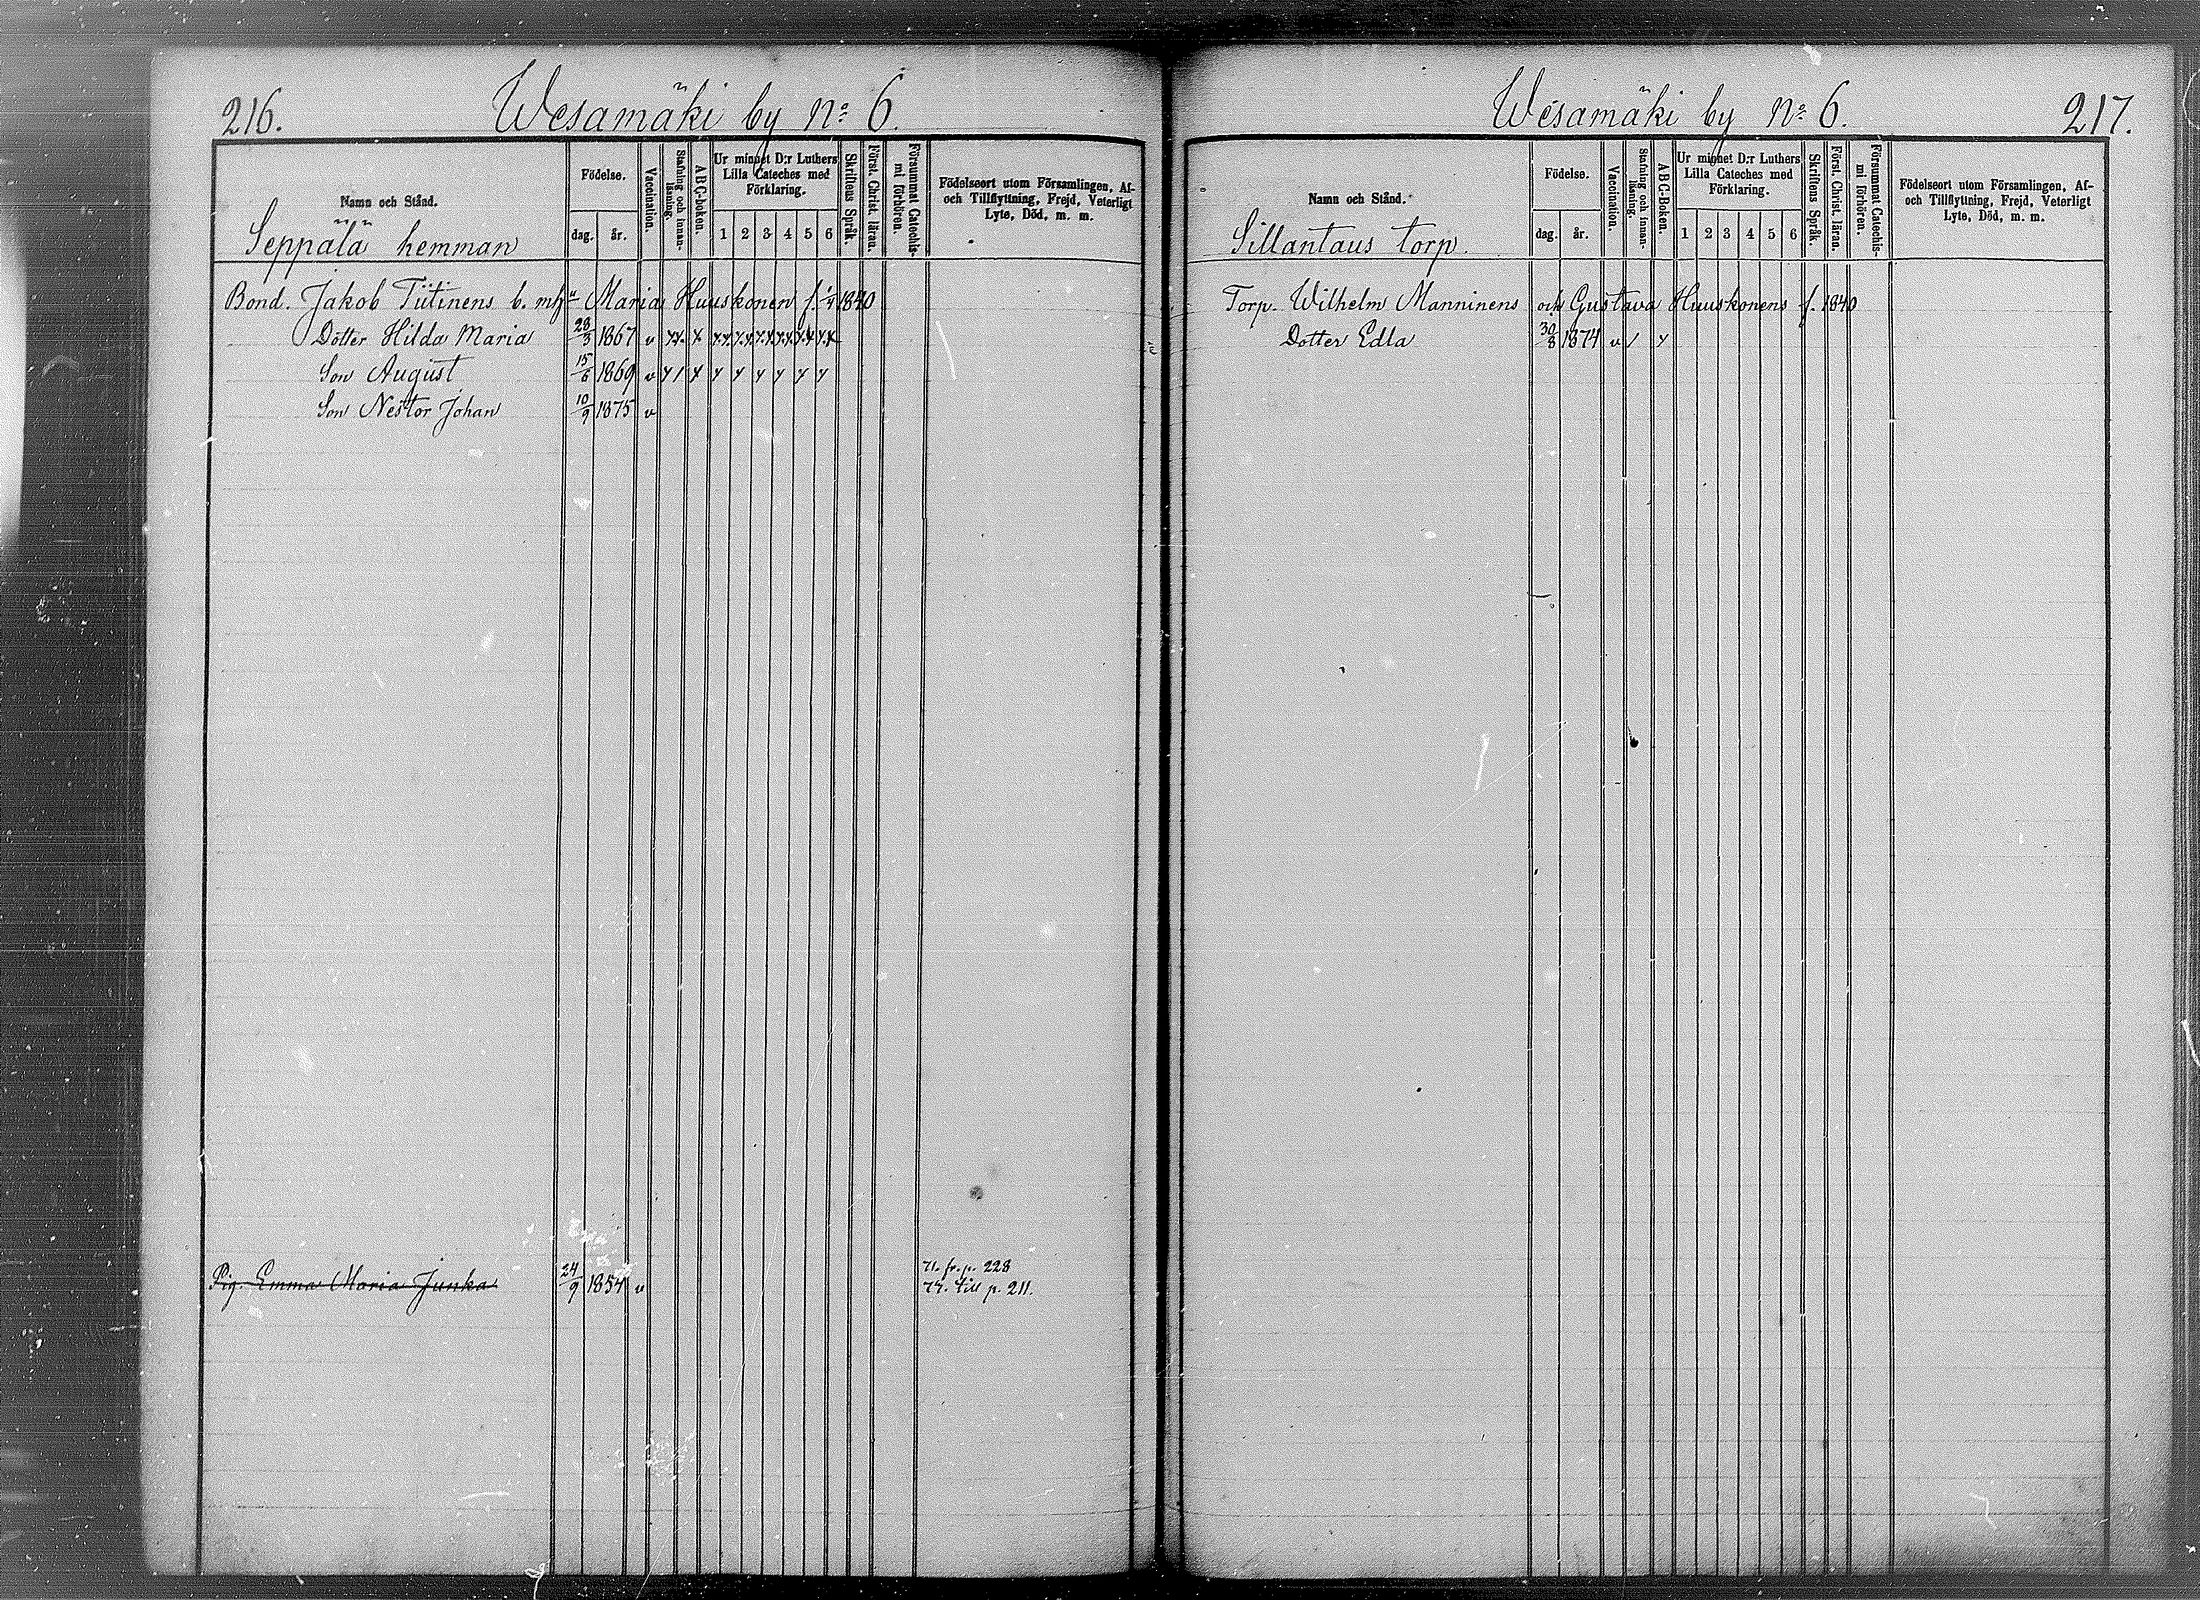 216.
Wesamäki by No 6.
Namn och Stånd.
Födelse.
dag.
år.
Vaccination.
Stafning och innan-läsning.
ABC-boken.
Ur minnet D:r Luthers
Lilla Cateches med
Förklaring.
1 2 3 4 5 6
Skriftens Språk.
Först. Christ. läran.
Försummat Catechis-
mi förhören.
Födelseort utom Församlingen, Af-
och Tillflyttning, Frejd, Veterligt
Lyte, Död, m. m.
Seppälä hemman
Bond. Jakob Tiitinens b. m. Maria Huuskonen f. 1840
Dotter Hilda Maria 28/3 1867 v
Son August 15/8 1869 v
Son Nestor Johan 10/9 1875 v
Pig. Emma Maria Junka 24/9 1854 v
71. fr. p. 228
77. till p. 211.
Wesamäki by No 6.
217.
Namn och Stånd.
Födelse.
dag.
år.
Vaccination.
Stafning och innan-
läsning.
ABC-Boken.
Ur minnet D:r Luthers
Lilla Cateches med
Förklaring.
1 2 3 4 5 6
Skriftens Språk.
Först. Christ. läran.
Försummat Catechis-
mi förhören.
Födelseort utom Församlingen, Af-
och Tillflyttning, Frejd, Veterligt
Lyte, Död, m. m.
Sillantaus torp.
Torp. Wilhelm Manninens och Gustava Huuskonens f. 1840
Dotter Edla 30/8 1874 v